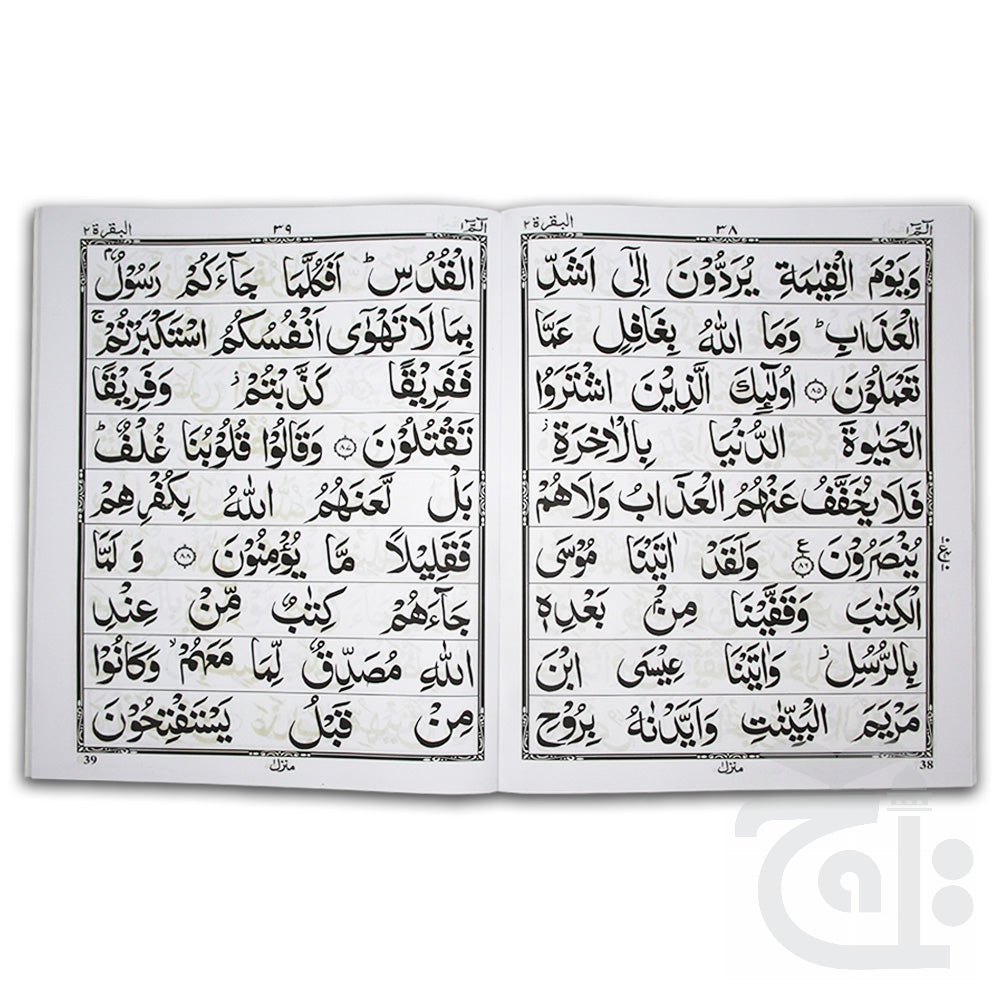 الٓمّٓ ١ ٣٨ البقرة ٢
وَيَوْمَ الْقِيٰمَةِ يُرَدُّوْنَ اِلٰٓى اَشَدِّ
الْعَذَابِ ؕ وَمَا اللّٰهُ بِغَافِلٍ عَمَّا
تَعْمَلُوْنَ ﴿۸۵﴾ اُولٰٓئِكَ الَّذِيْنَ اشْتَرَوُا
الْحَيٰوةَ الدُّنْيَا بِالْاٰخِرَةِ ؗ
فَلَا يُخَفَّفُ عَنْهُمُ الْعَذَابُ وَلَا هُمْ
يُنْصَرُوْنَ ﴿۸۶﴾ ع وَلَقَدْ اٰتَيْنَا مُوْسَى
الْكِتٰبَ وَقَفَّيْنَا مِنْۢ بَعْدِهٖ
بِالرُّسُلِ ؗ وَاٰتَيْنَا عِيْسَى ابْنَ
مَرْيَمَ الْبَيِّنٰتِ وَاَيَّدْنٰهُ بِرُوْحِ
منزل ١ 38
الٓمّٓ ١ ٣٩ البقرة ٢
الْقُدُسِ ؕ اَفَكُلَّمَا جَآءَكُمْ رَسُوْلٌۢ
بِمَا لَا تَهْوٰٓى اَنْفُسُكُمُ اسْتَكْبَرْتُمْ ۚ
فَفَرِيْقًا كَذَّبْتُمْ ؗ وَفَرِيْقًا
تَقْتُلُوْنَ ﴿۸۷﴾ وَقَالُوْا قُلُوْبُنَا غُلْفٌ ؕ
بَلْ لَّعَنَهُمُ اللّٰهُ بِكُفْرِهِمْ
فَقَلِيْلًا مَّا يُؤْمِنُوْنَ ﴿۸۸﴾ وَلَمَّا
جَآءَهُمْ كِتٰبٌ مِّنْ عِنْدِ
اللّٰهِ مُصَدِّقٌ لِّمَا مَعَهُمْ ۙ وَكَانُوْا
مِنْ قَبْلُ يَسْتَفْتِحُوْنَ
منزل ١ 39